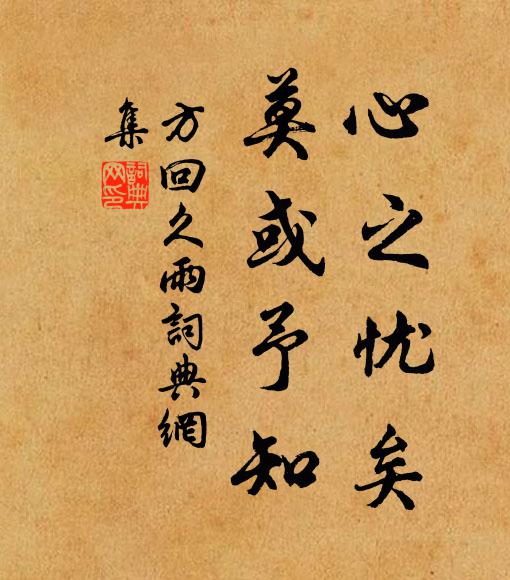 心之忧矣
莫或予知
方回久雨詞典網
集
詞典
网印